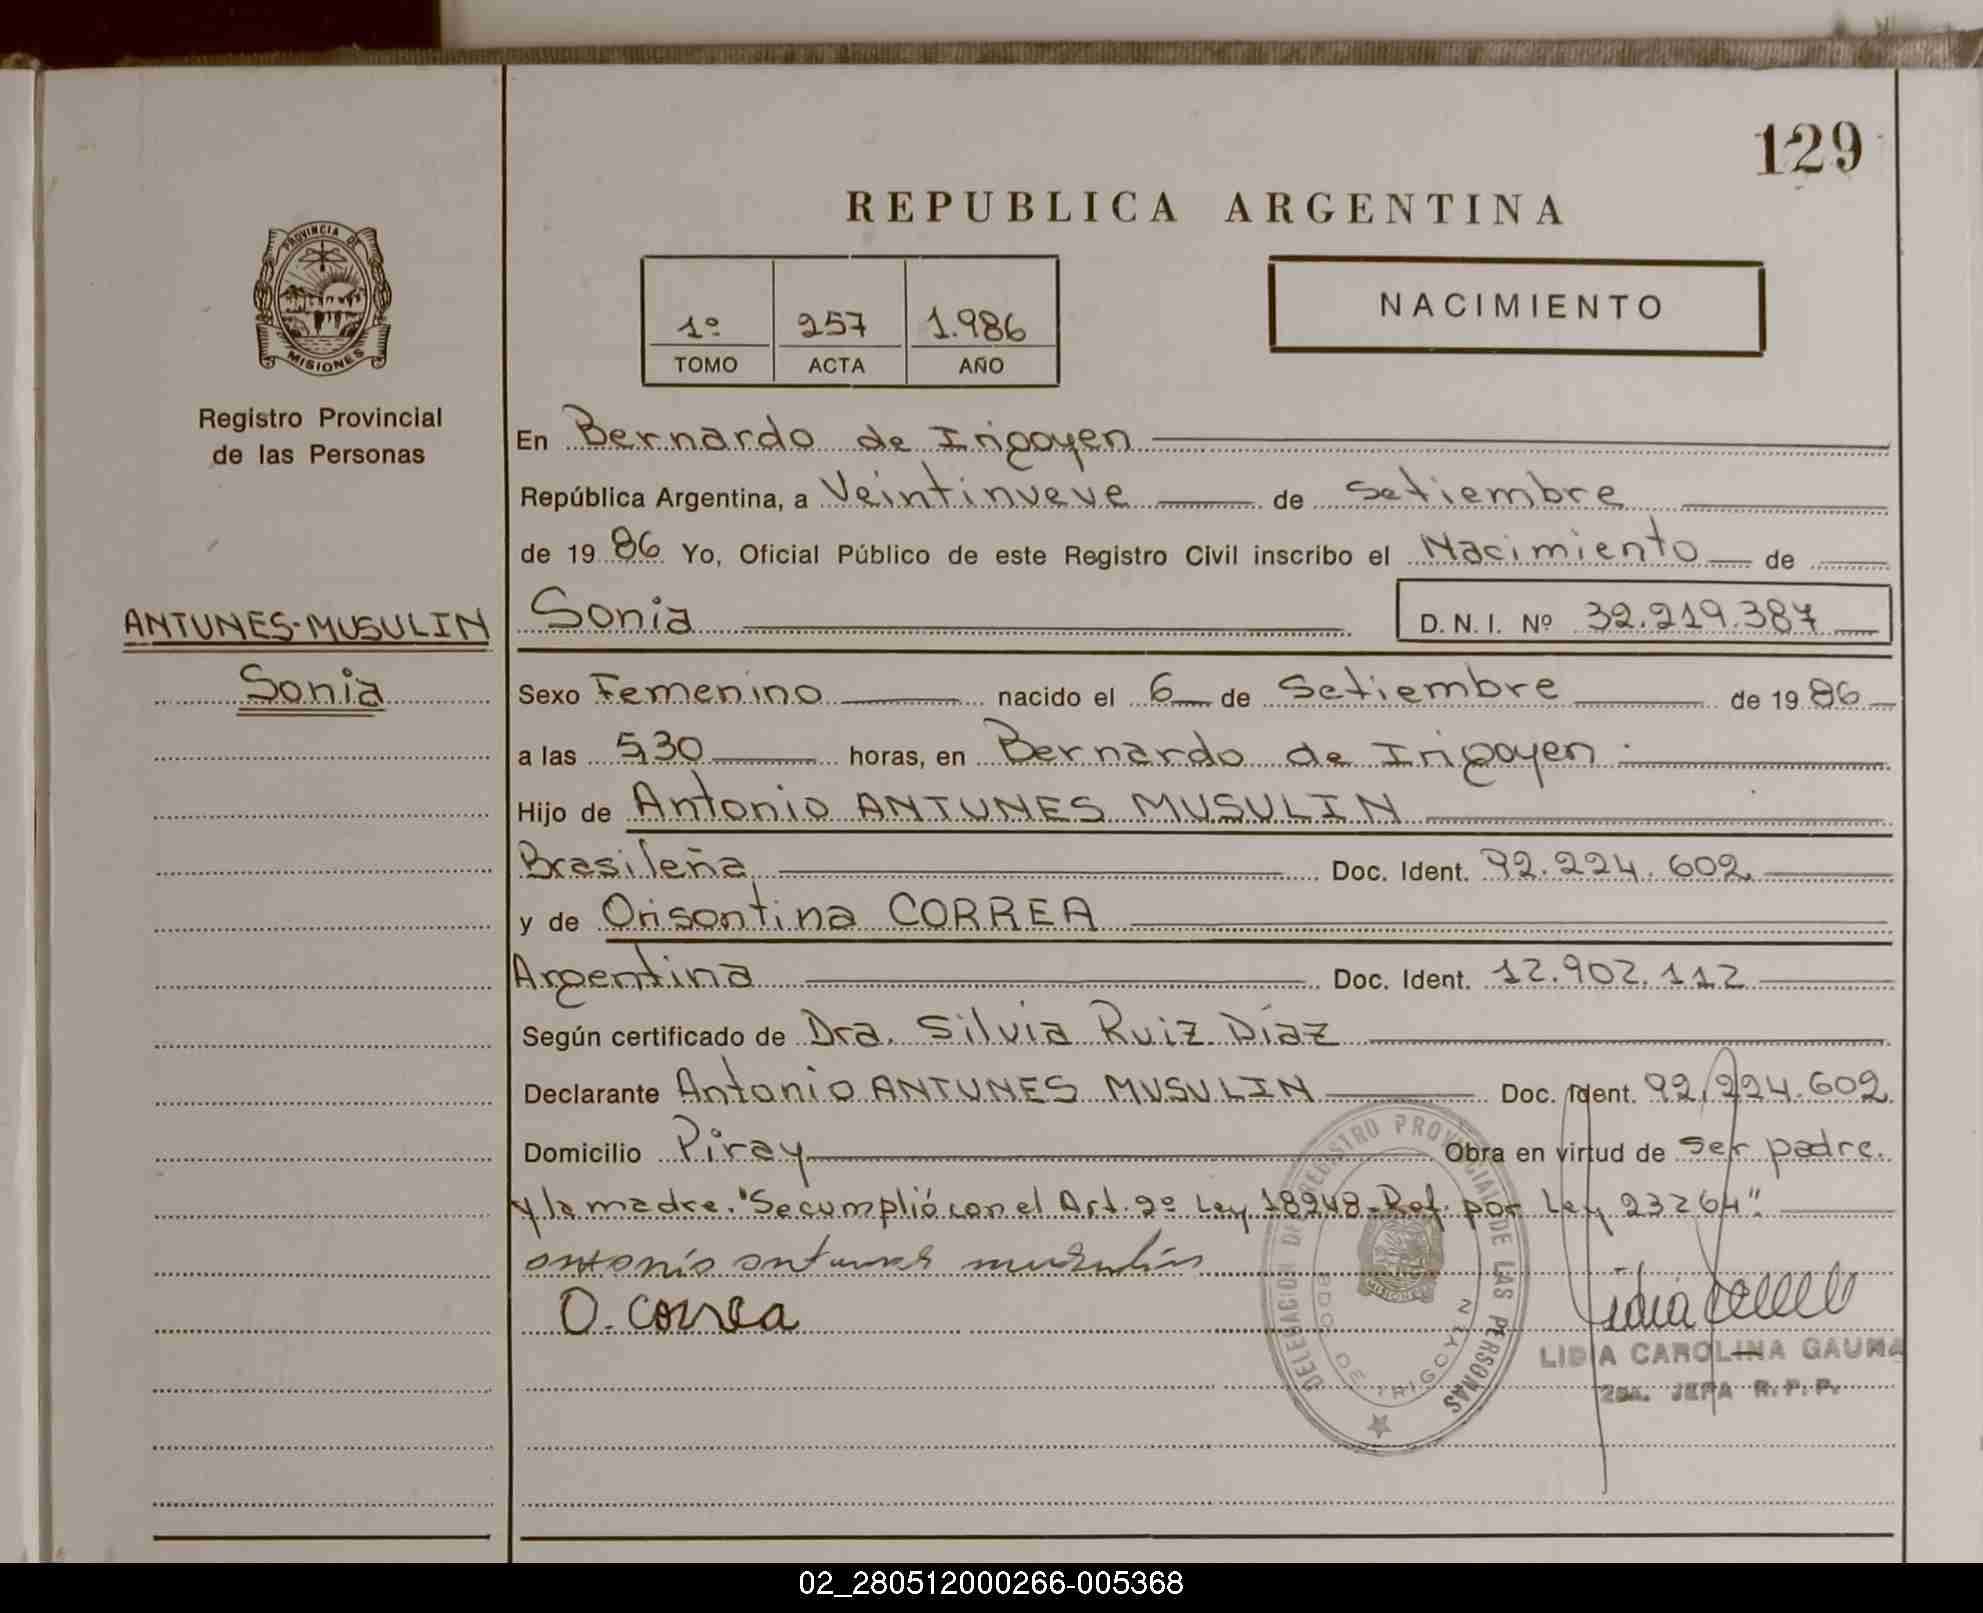 129
REPUBLICA ARGENTINA
PROVINCIA DE
MISIONES
Registro Provincial
de las Personas
1º 257 1.986
TOMO ACTA AÑO
NACIMIENTO
En Bernardo de Irigoyen
República Argentina, a Veintinueve de Setiembre
de 1986 Yo, Oficial Público de este Registro Civil inscribo el Nacimiento de
ANTUNES-MUSULIN
Sonia
Sonia D.N.I. Nº 32.219.387
Sexo Femenino nacido el 6 de Setiembre de 1986
a las 5,30 horas, en Bernardo de Irigoyen.
Hijo de Antonio ANTUNES MUSULIN
Brasileña Doc. Ident. 92.224.602
y de Orisontina CORREA
Argentina Doc. Ident. 12.902.112
Según certificado de Dra. Silvia Ruiz Díaz
Declarante Antonio ANTUNES MUSULIN Doc. Ident. 92.224.602
Domicilio Piray Obra en virtud de ser padre.
y la madre. "Se cumplió con el Art. 2º Ley 18248-Ref. por Ley 23264".
antonio antunes musulin
O. Correa
DELEGACION DE REGISTRO PROVINCIAL DE LAS PERSONAS
BDO. DE IRIGOYEN
MISIONES
LIDIA CAROLINA GAUNA
2DA. JEFA R.P.P.
02_280512000266-005368